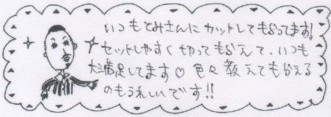 いつもてみさんにカットしてもらってます!
セットしやすく切ってもらえて、いつも
大満足してます♡ 色々教えてもらえる
のもうれしいです!!